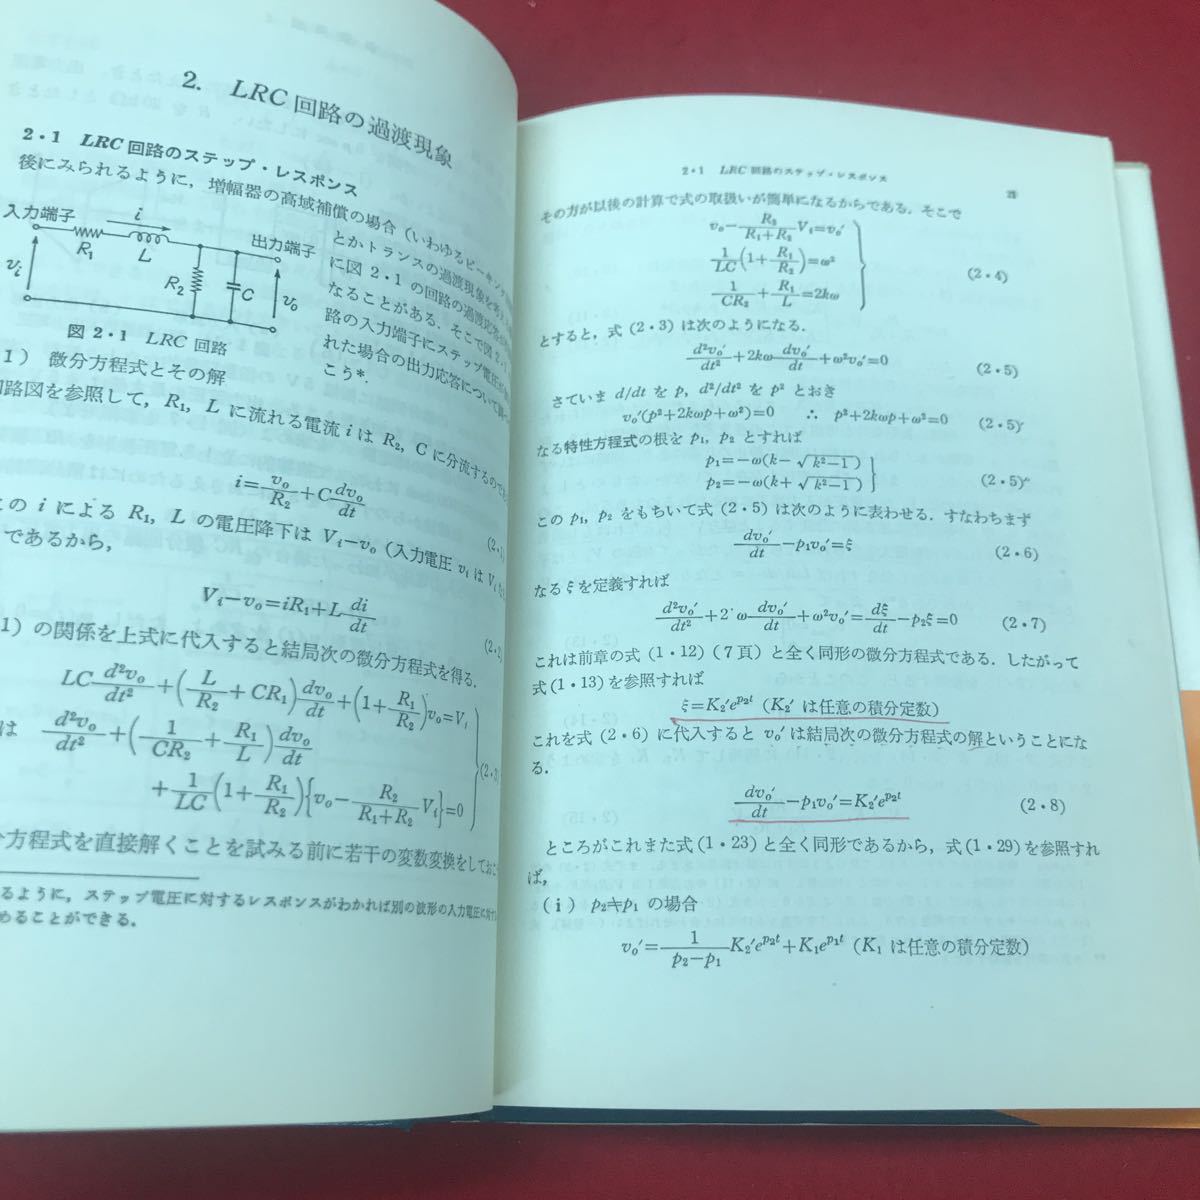 2. LRC 回路の過渡現象
2・1 LRC 回路のステップ・レスポンス
後にみられるように，増幅器の高域補償の場合（いわゆるピーキング
とかトランスの過渡現象を
に図 2・1 の回路の過渡応答が
なることがある．そこで図 2・1
路の入力端子にステップ電圧が
れた場合の出力応答について調べ
こう*．
入力端子
i
出力端子
R₁
L
vᵢ
R₂
C
v₀
図 2・1 LRC 回路
1） 微分方程式とその解
回路図を参照して，R₁, L に流れる電流 i は R₂, C に分流するので
i=v₀/R₂+C dv₀/dt
(2・1)
この i による R₁, L の電圧降下は Vᵢ−v₀（入力電圧 vᵢ は Vᵢ
であるから，
Vᵢ−v₀=iR₁+L di/dt
(2・2)
1）の関係を上式に代入すると結局次の微分方程式を得る．
LC d²v₀/dt²+(L/R₂+CR₁)dv₀/dt+(1+R₁/R₂)v₀=Vᵢ
は d²v₀/dt²+(1/CR₂+R₁/L)dv₀/dt
+1/LC(1+R₁/R₂){v₀−R₂/(R₁+R₂)Vᵢ}=0
(2・3)
方程式を直接解くことを試みる前に若干の変数変換をしておこ
るように，ステップ電圧に対するレスポンスがわかれば別の波形の入力電圧に対す
めることができる．
2・1 LRC 回路のステップ・レスポンス
その方が以後の計算で式の取扱いが簡単になるからである．そこで
v₀−R₂/(R₁+R₂)Vᵢ=v₀′
1/LC(1+R₁/R₂)=ω²
(2・4)
1/CR₂+R₁/L=2kω
とすると，式 (2・3) は次のようになる．
d²v₀′/dt²+2kω dv₀′/dt+ω²v₀′=0
(2・5)
さていま d/dt を p, d²/dt² を p² とおき
v₀′(p²+2kωp+ω²)=0 ∴ p²+2kωp+ω²=0
(2・5)′
なる特性方程式の根を p₁, p₂ とすれば
p₁=−ω(k−√k²−1)
p₂=−ω(k+√k²−1)
(2・5)″
この p₁, p₂ をもちいて式 (2・5) は次のように表わせる．すなわちまず
dv₀′/dt−p₁v₀′=ξ
(2・6)
なる ξ を定義すれば
d²v₀′/dt²+2 ω dv₀′/dt+ω²v₀′=dξ/dt−p₂ξ=0
(2・7)
これは前章の式 (1・12) (7頁) と全く同形の微分方程式である．したがって
式 (1・13) を参照すれば
ξ=K₂′eᵖ²ᵗ (K₂′ は任意の積分定数)
これを式 (2・6) に代入すると v₀′ は結局次の微分方程式の解ということにな
る．
dv₀′/dt−p₁v₀′=K₂′eᵖ²ᵗ
(2・8)
ところがこれまた式 (1・23) と全く同形であるから，式 (1・29) を参照すれ
ば，
(i) p₂≠p₁ の場合
v₀′=1/(p₂−p₁) K₂′eᵖ²ᵗ+K₁eᵖ¹ᵗ (K₁ は任意の積分定数)